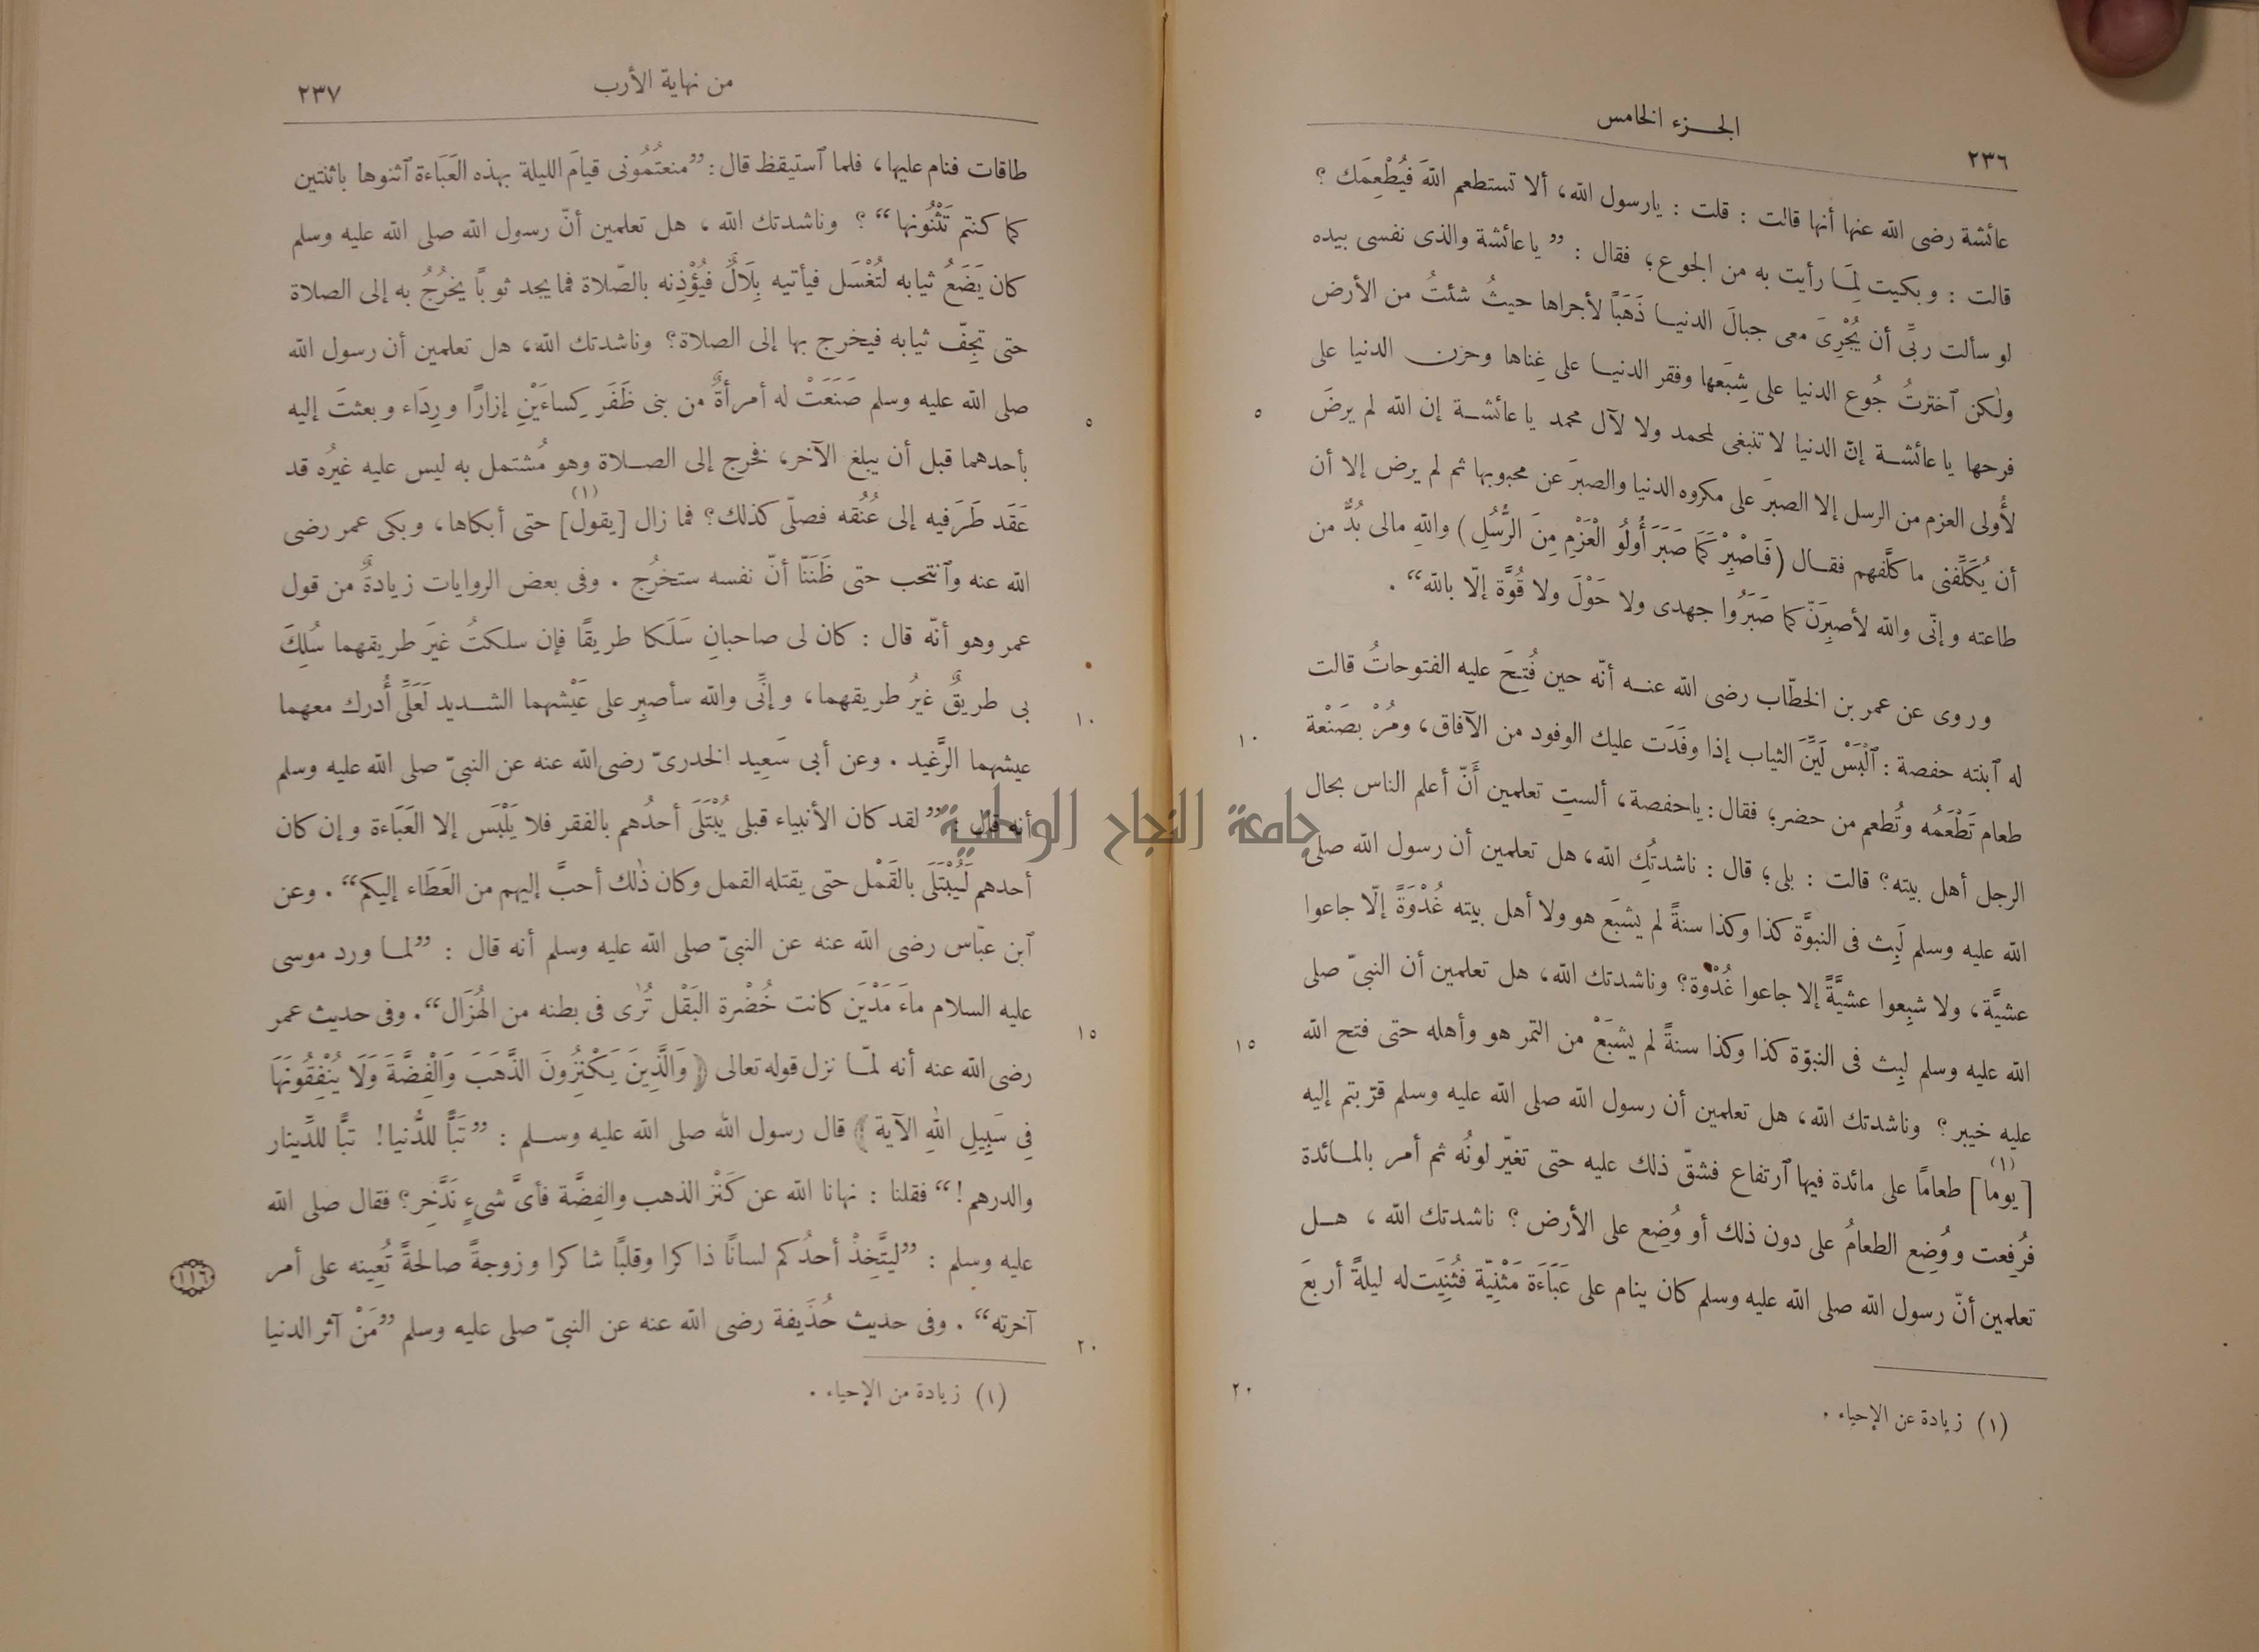 ٢٣٦
الجزء الخامس
عائشة رضى الله عنها أنها قالت : قلت : يارسول الله، ألا تستطعم اللهَ فيُطْعِمَك ؟
قالت : وبكيت لِمَا رأيت به من الجوع؛ فقال : ”يا عائشة والذى نفسى بيده
لو سألت ربِّى أن يُجْرِىَ معى جبالَ الدنيا ذَهَبًا لأجراها حيثُ شئتُ من الأرض
ولٰكن ٱخترتُ جُوع الدنيا على شِبَعها وفقر الدنيا على غِناها وحزن الدنيا على
فرحها يا عائشة إنّ الدنيا لا تنبغى لمحمد ولا لآل محمد يا عائشة إن الله لم يرضَ
٥
لأُولى العزم من الرسل إلا الصبرَ على مكروه الدنيا والصبرَ عن محبوبها ثم لم يرض إلا أن
أن يُكَلِّفنى ما كلَّفهم فقال (فَاصْبِرْ كَمَا صَبَرَ أُولُو الْعَزْمِ مِنَ الرُّسُلِ) واللهِ مالى بُدٌّ من
طاعته وإنّى والله لأصبِرَنّ كما صَبَرُوا جهدى ولا حَوْلَ ولا قُوَّة إلّا بالله“ .
وروى عن عمر بن الخطّاب رضى الله عنه أنّه حين فُتِحَ عليه الفتوحاتُ قالت
له ٱبنته حفصة : ٱلْبَسْ لَيِّنَ الثياب إذا وفَدَت عليك الوفود من الآفاق، ومُرْ بصَنْعة
١٠
طعام تَطْعَمُه وتُطعم من حضر؛ فقال : ياحفصة، ألستِ تعلمين أَنّ أعلم الناس بحال
الرجل أهل بيته؟ قالت : بلى؛ قال : ناشدتُكِ الله، هل تعلمين أن رسول الله صلى
الله عليه وسلم لَبِث فى النبوَّة كذا وكذا سنةً لم يشبَع هو ولا أهل بيته غُدْوَةً إلّا جاعوا
عشيَّة، ولا شبِعوا عشيَّةً إلا جاعوا غُدْوة؟ وناشدتك الله، هل تعلمين أن النبىّ صلى
الله عليه وسلم لبِث فى النبوّة كذا وكذا سنةً لم يشبَعْ من التمر هو وأهله حتى فتح الله
١٥
عليه خيبر؟ وناشدتك الله، هل تعلمين أن رسول الله صلى الله عليه وسلم قرّبتم إليه
[يوما](١) طعامًا على مائدة فيها ٱرتفاع فشقّ ذلك عليه حتى تغيّر لونُه ثم أمر بالمائدة
فرُفِعت ووُضِع الطعامُ على دون ذلك أو وُضِع على الأرض ؟ ناشدتك الله ، هل
تعلمين أنّ رسول الله صلى الله عليه وسلم كان ينام على عَبَاءَة مَثْنِيّة فثُنِيَت له ليلةً أربعَ
٢٠
(١) زيادة عن الإحياء .
من نهاية الأرب
٢٣٧
طاقات فنام عليها، فلما ٱستيقظ قال : ”منعتُمُونى قيامَ الليلة بهذه العَبَاءة ٱثنوها باثنتين
كما كنتم تَثْنُونها“ ؟ وناشدتك الله ، هل تعلمين أنّ رسول الله صلى الله عليه وسلم
كان يَضَعُ ثيابه لتُغْسَل فيأتيه بِلَالٌ فيُؤْذِنه بالصّلاة فما يجد ثوبًا يخرُجُ به إلى الصلاة
حتى تجِفّ ثيابه فيخرج بها إلى الصلاة؟ وناشدتك الله، هل تعلمين أن رسول الله
صلى الله عليه وسلم صَنَعَتْ له ٱمرأةٌ من بنى ظَفَر كِساءَيْنِ إزارًا ورِدَاء وبعثتَ إليه
٥
بأحدهما قبل أن يبلغ الآخر، فخرج إلى الصلاة وهو مُشتمل به ليس عليه غيرُه قد
عَقَد طَرَفيه إلى عُنُقه فصلّى كذلك؟ فما زال [يقول](١) حتى أبكاها، وبكى عمر رضى
الله عنه وٱنتحب حتى ظَنَنّا أنّ نفسه ستخرُج . وفى بعض الروايات زيادةٌ من قول
عمر وهو أنّه قال : كان لى صاحبانِ سَلَكا طريقًا فإن سلكتُ غيرَ طريقهما سُلِكَ
بى طريقٌ غيرُ طريقهما، وإنِّى والله سأصبِر على عَيْشهما الشديد لَعَلِّى أُدرك معهما
١٠
عيشهما الرَّغيد . وعن أبى سَعِيد الخدرىّ رضى الله عنه عن النبىّ صلى الله عليه وسلم
أنه قال : ”لقد كان الأنبياء قبلى يُبْتَلَى أحدُهم بالفقر فلا يَلْبَس إلا العَبَاءة وإن كان
جامعة النجاح الوطنية
أحدهم لَيُبْتَلَى بالقَمْل حتى يقتله القمل وكان ذٰلك أحبَّ إليهم من العَطَاء إليكم“ . وعن
ٱبن عبّاس رضى الله عنه عن النبىّ صلى الله عليه وسلم أنه قال : ”لما ورد موسى
عليه السلام ماءَ مَدْيَن كانت خُضْرة البَقْل تُرٰى فى بطنه من الهُزَال“. وفى حديث عمر
١٥
رضى الله عنه أنه لمّا نزل قوله تعالى ﴿وَالَّذِينَ يَكْنِزُونَ الذَّهَبَ وَالْفِضَّةَ وَلَا يُنْفِقُونَهَا
فِى سَبِيلِ اللهِ الآية﴾ قال رسول الله صلى الله عليه وسلم : ”تَبًّا للدُّنيا! تبًّا للدِّينار
والدرهم!“ فقلنا : نهانا الله عن كَنْز الذهب والفِضَّة فأىَّ شىءٍ نَدَّخِر؟ فقال صلى الله
عليه وسلم : ”ليتَّخِذْ أحدُكم لسانًا ذاكرا وقلبًا شاكرا وزوجةً صالحةً تُعِينه على أمر
١١٦
آخرته“ . وفى حديث حُذَيفة رضى الله عنه عن النبىّ صلى عليه وسلم ”مَنْ آثر الدنيا
٢٠
(١) زيادة من الإحياء .